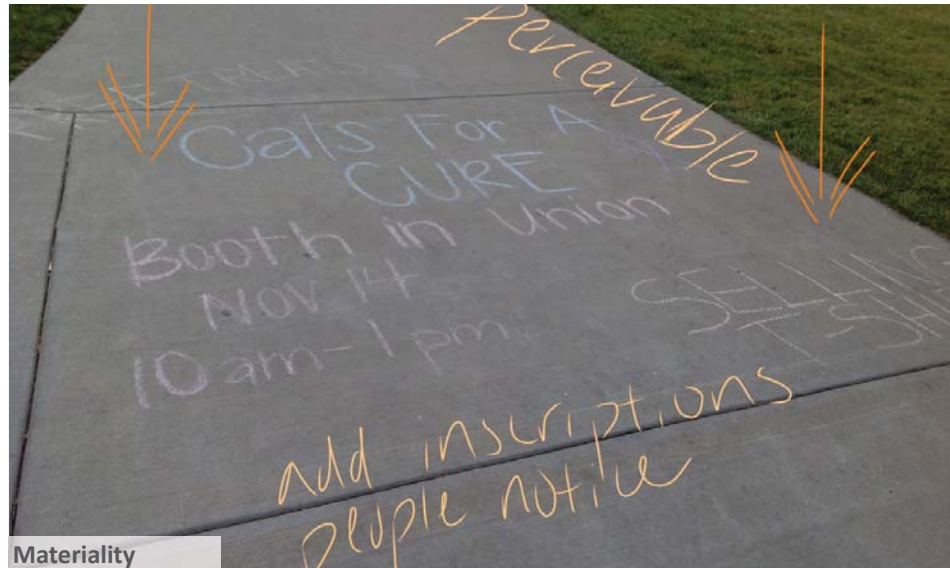 perceivable
FREE TREATS
Cals For A
CURE
Booth in Union
NOV 14
10am-1pm
SELLING
T-SH
add inscriptions
people notice
Materiality